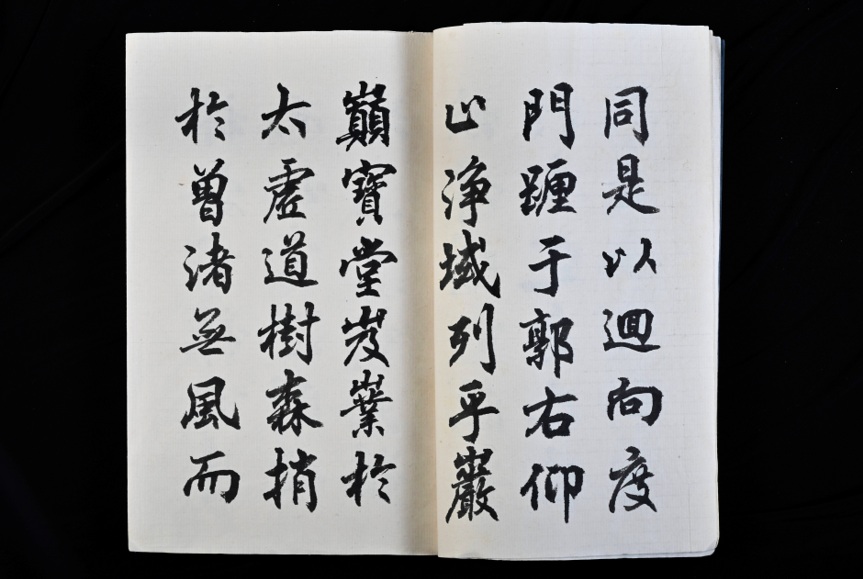 同是以迴向度
門躔于郭右仰
止淨域列乎巖
巔寶堂岌嶪於
太虛道樹森梢
於曾渚無風而